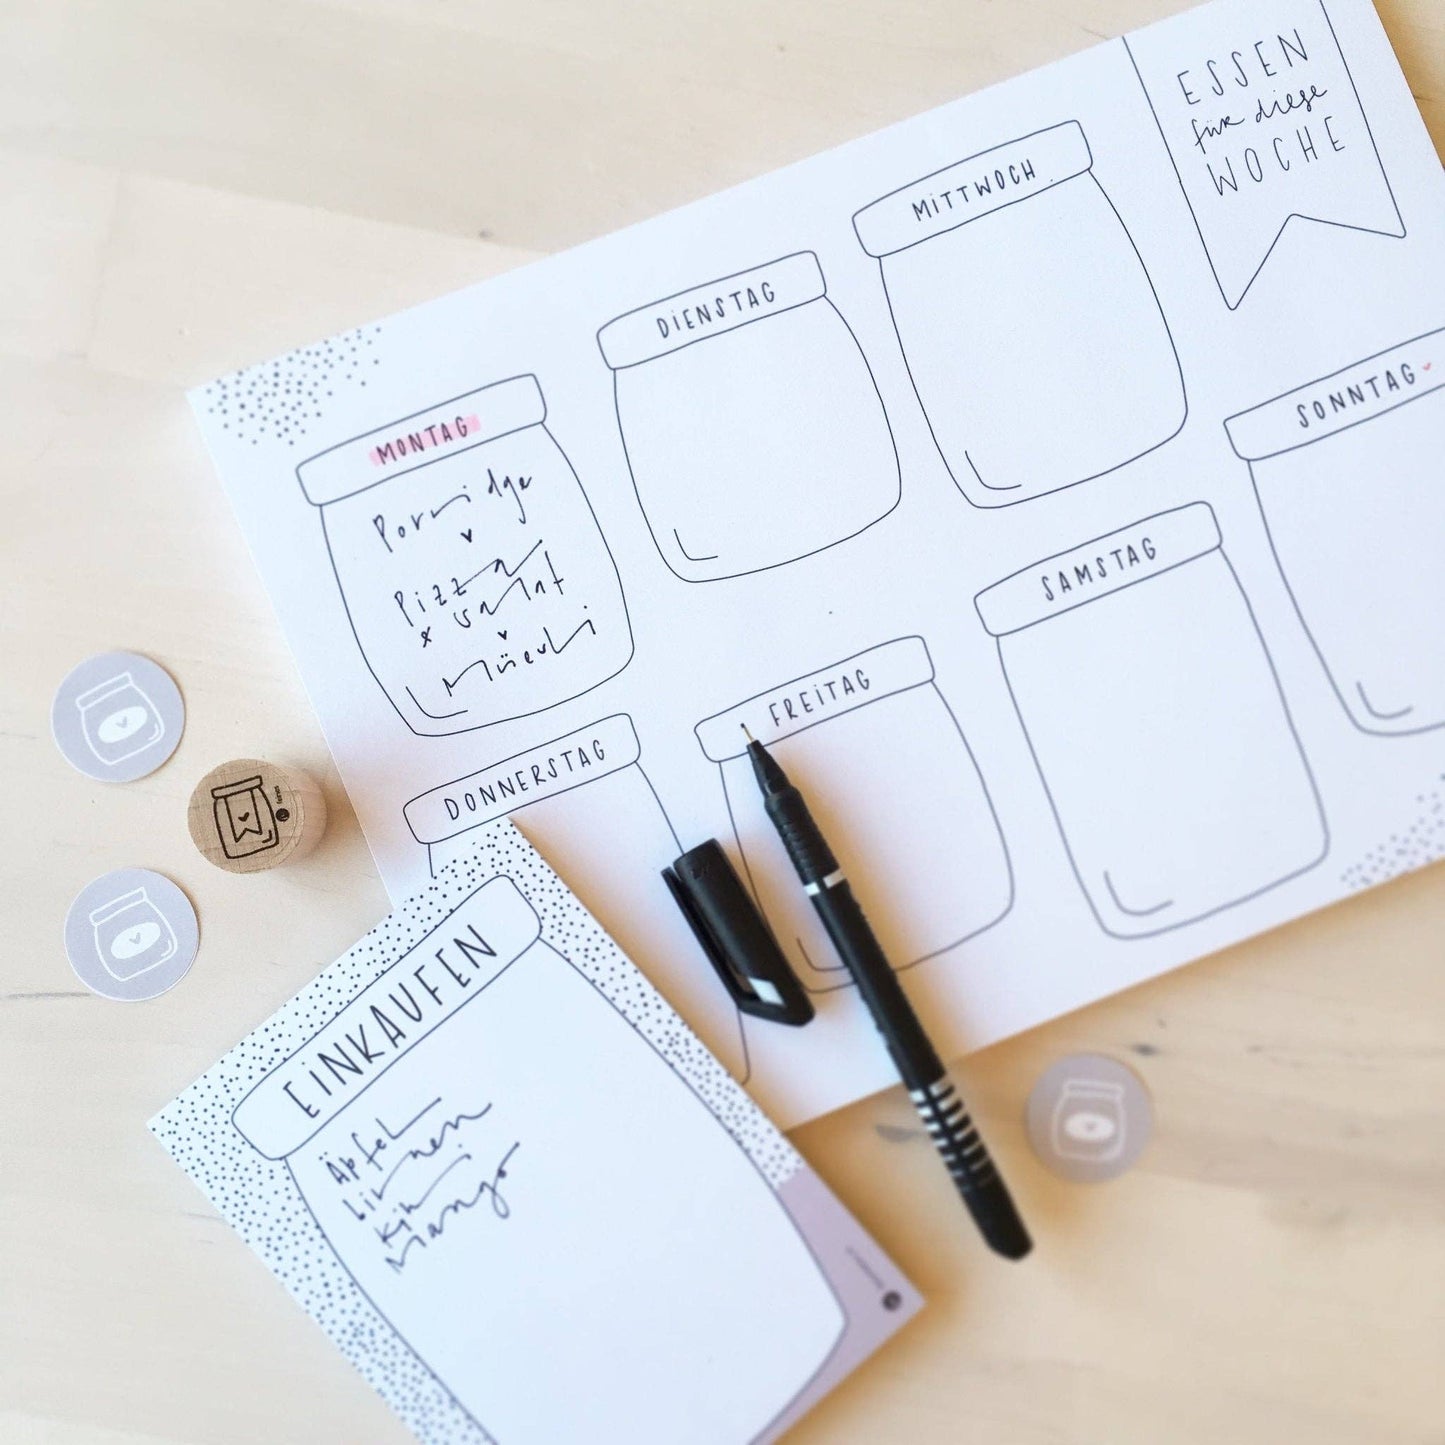 ESSEN
für diese
WOCHE
MONTAG
Porridge
Pizza
& Salat
Müsli
DIENSTAG
MITTWOCH
DONNERSTAG
FREITAG
SAMSTAG
SONNTAG
EINKAUFEN
Äpfel
Birnen
Kiwi
Mango